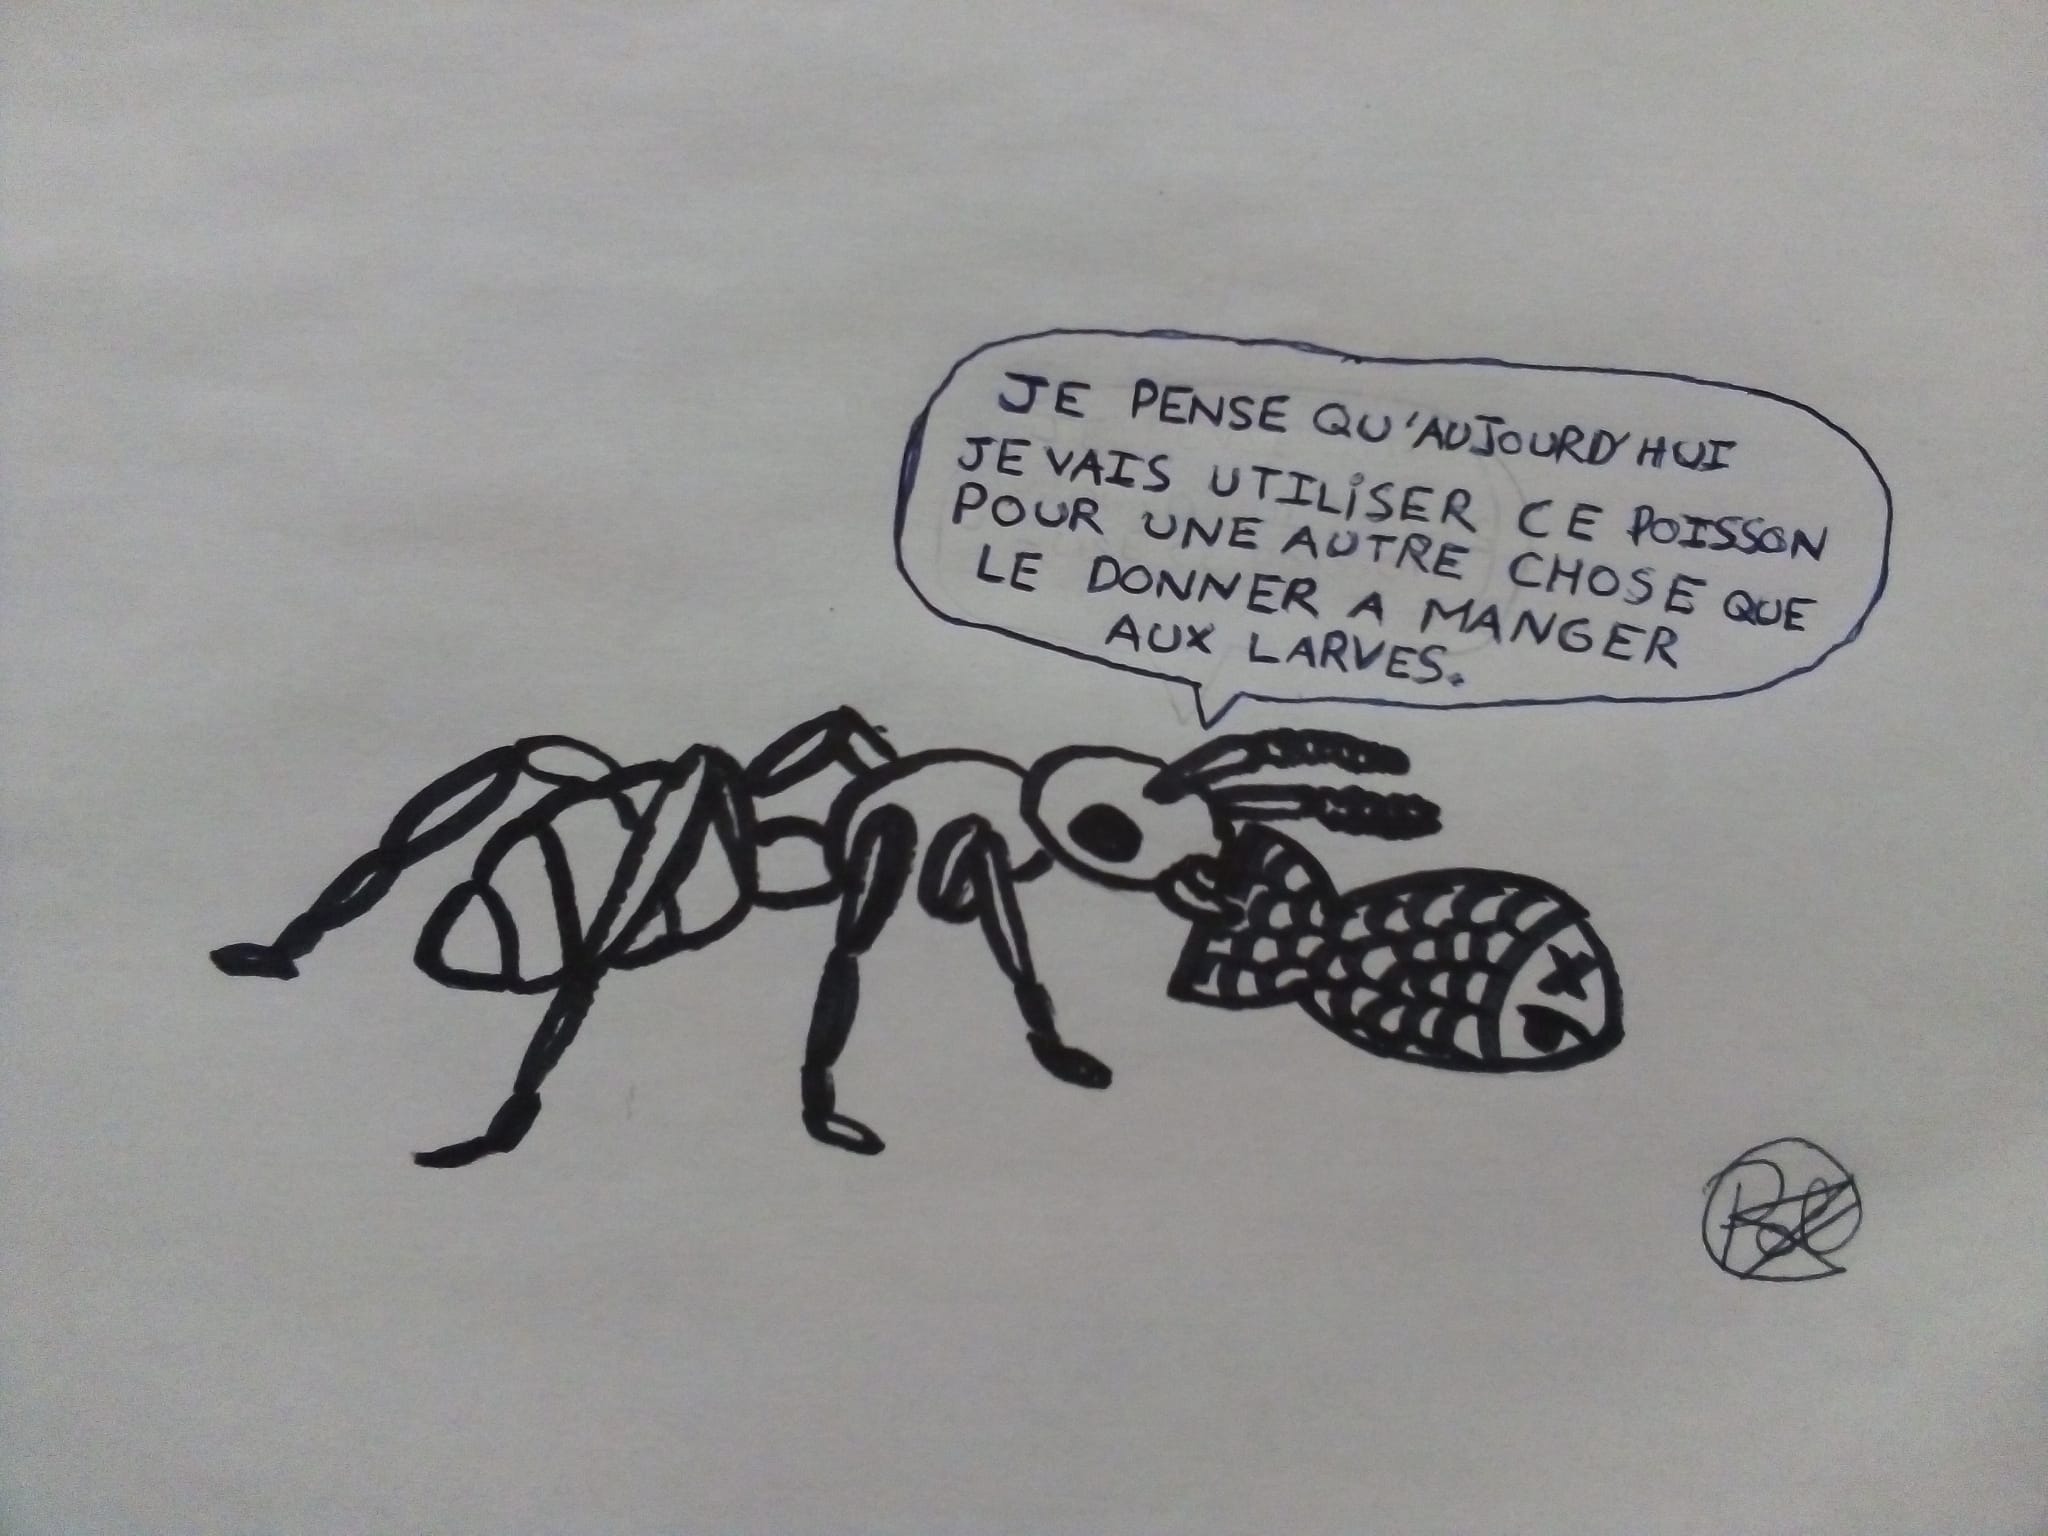 JE PENSE QU'AUJOURD'HUI
JE VAIS UTILISER CE POISSON
POUR UNE AUTRE CHOSE QUE
LE DONNER A MANGER
AUX LARVES.